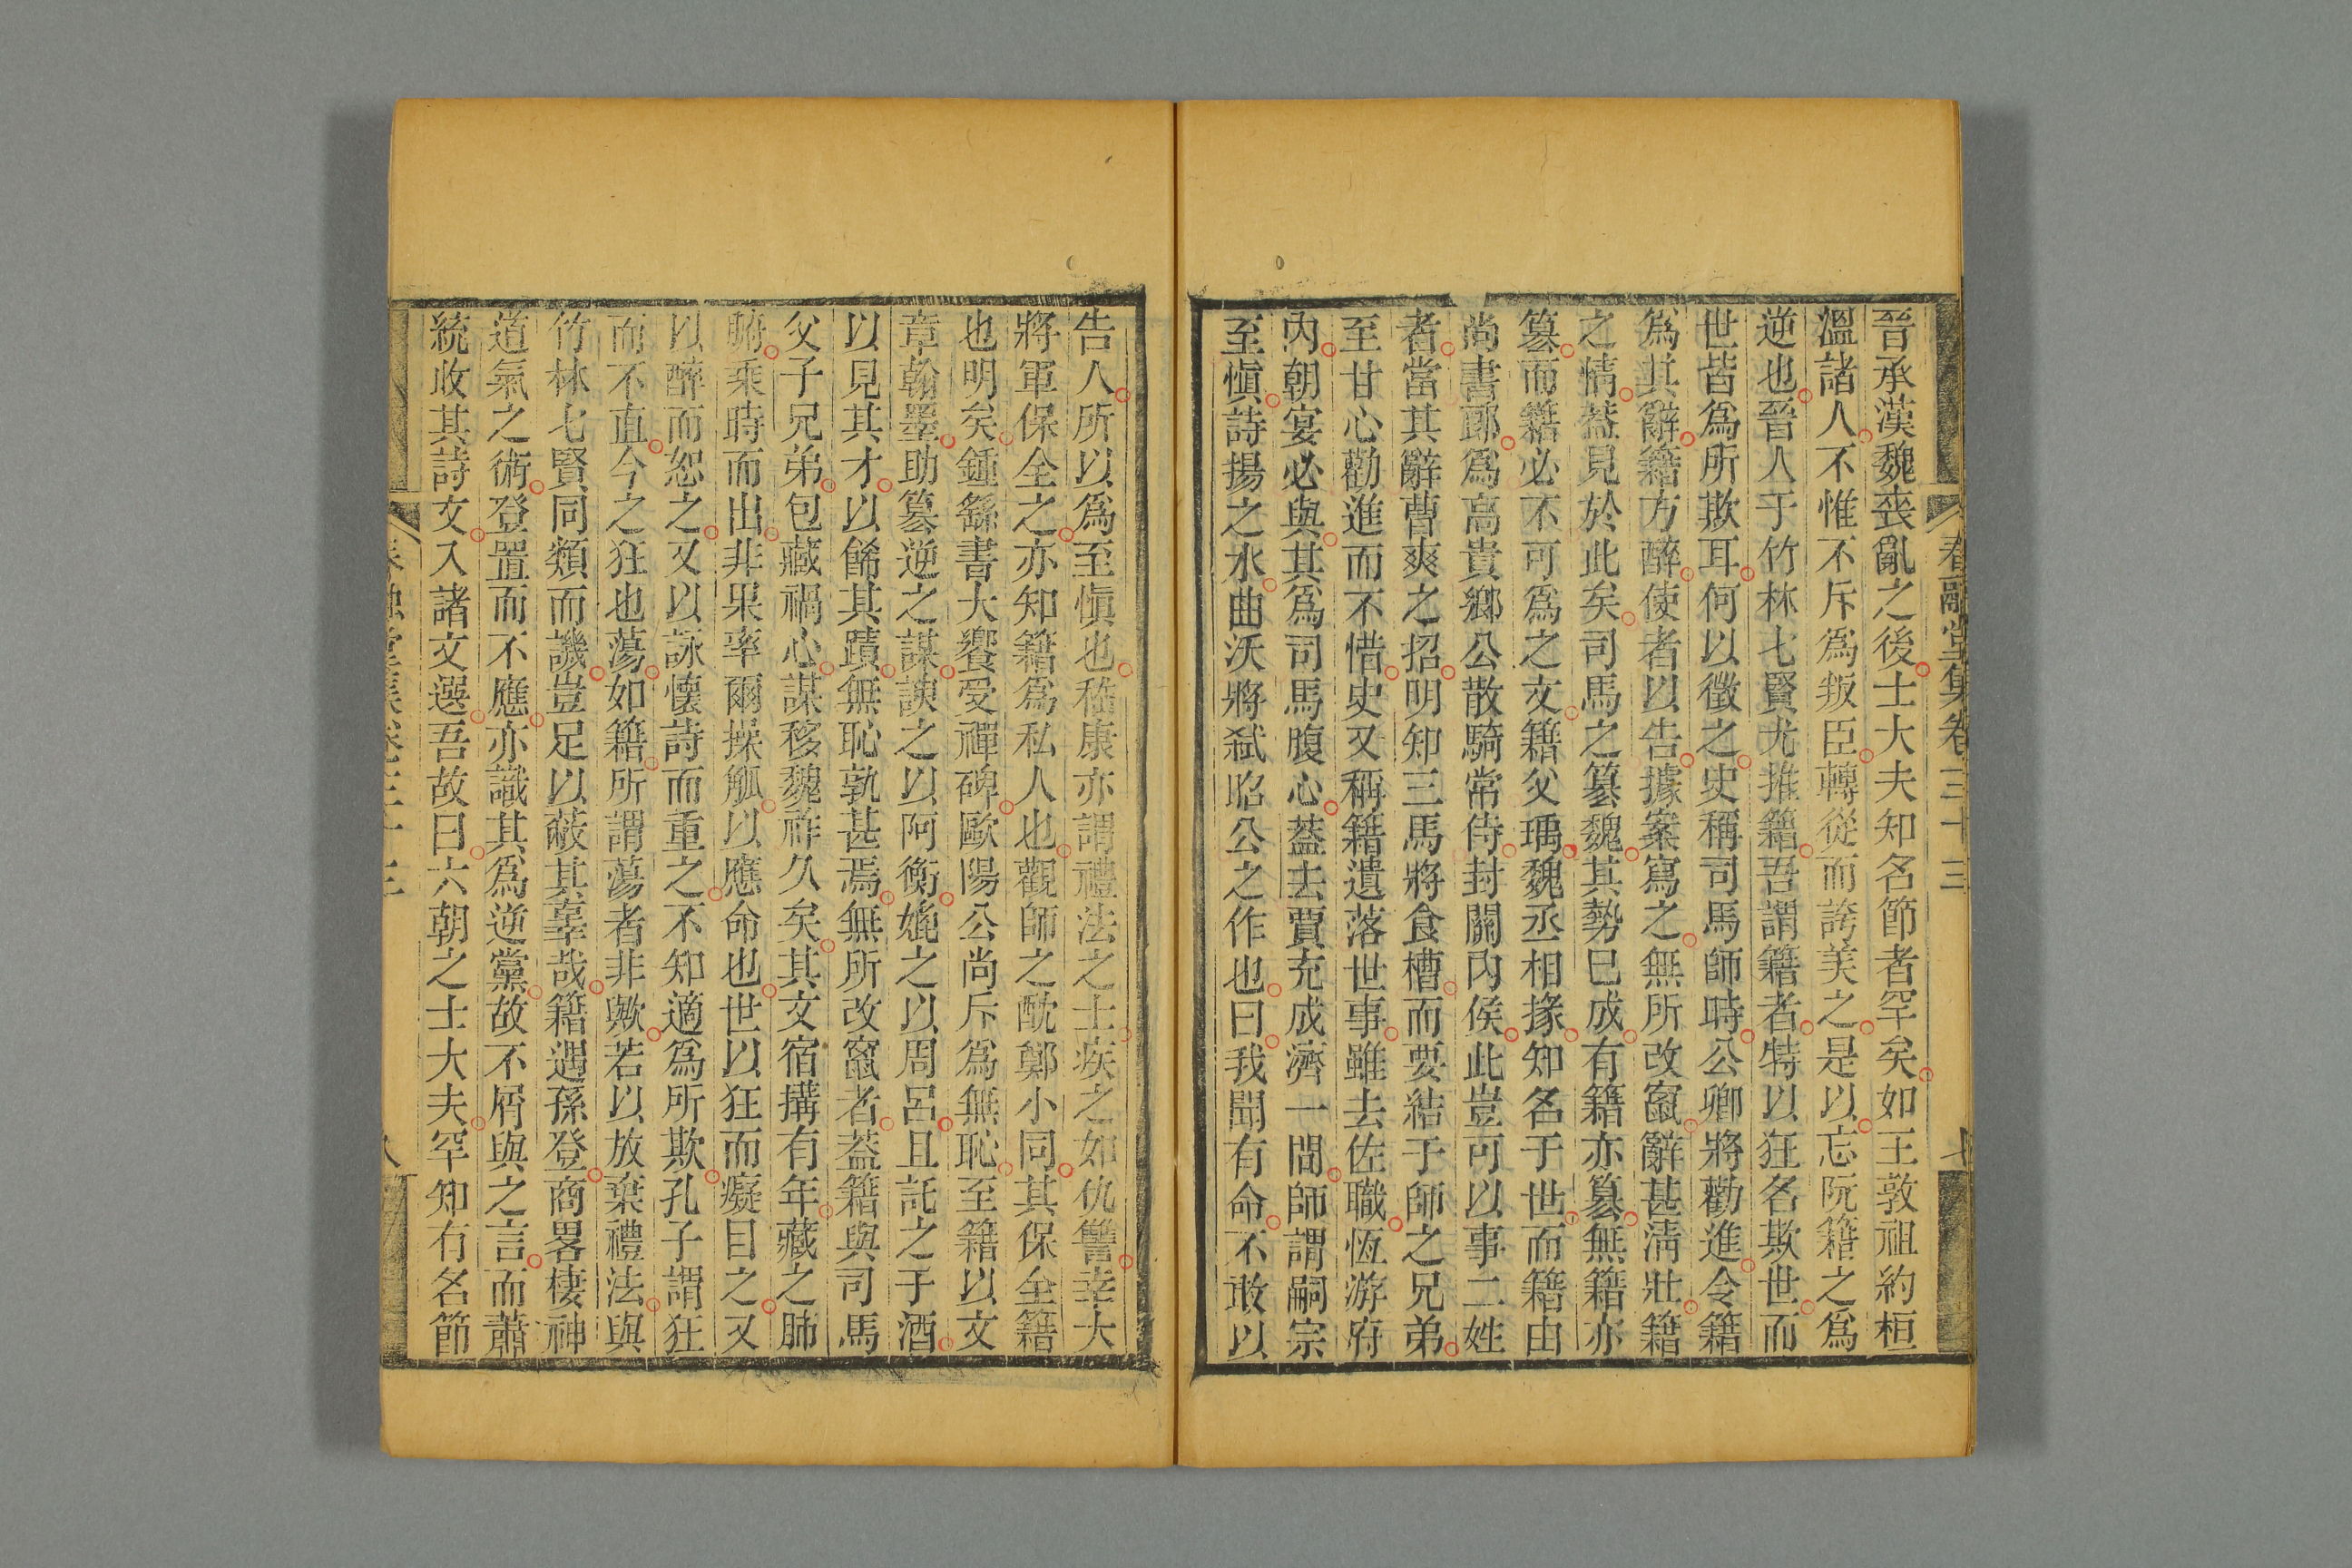 春融堂集卷三十三
晉承漢魏喪亂之後士大夫知名節者罕矣如王敦祖約桓
溫諸人不惟不斥爲叛臣轉從而誇美之是以忘阮籍之爲
逆也晉人于竹林七賢尤推籍吾謂籍者特以狂名欺世而
世皆爲所欺耳何以徵之史稱司馬師時公卿將勸進令籍
爲其辭籍方醉使者以告據案寫之無所改竄辭甚淸壯籍
之情葢見於此矣司馬之簒魏其勢已成有籍亦簒無籍亦
簒而籍必不可爲之文籍父瑀魏丞相掾知名于世而籍由
尚書郞爲高貴鄕公散騎常侍封關內侯此豈可以事二姓
者當其辭曹爽之招明知三馬將食槽而要結于師之兄弟
至甘心勸進而不惜史又稱籍遺落世事雖去佐職恆游府
內朝宴必與其爲司馬腹心葢去賈充成濟一間師謂嗣宗
至愼詩揚之水曲沃將弒昭公之作也曰我聞有命不敢以
告人所以爲至愼也嵇康亦謂禮法之士疾之如仇讐幸大
將軍保全之亦知籍爲私人也觀師之酖鄭小同其保全籍
也明矣鍾繇書大饗受禪碑歐陽公尚斥爲無恥至籍以文
章翰墨助簒逆之謀諛之以阿衡媲之以周呂且託之于酒
以見其才以餙其蹟無恥孰甚焉無所改竄者葢籍與司馬
父子兄弟包藏禍心謀移魏祚久矣其文宿搆有年藏之肺
腑乘時而出非果率爾操觚以應命也世以狂而癡目之又
以醉而恕之又以詠懷詩而重之不知適爲所欺孔子謂狂
而不直今之狂也蕩如籍所謂蕩者非歟若以放棄禮法與
竹林七賢同類而譏豈足以蔽其辜哉籍遇孫登商畧棲神
道氣之術登置而不應亦識其爲逆黨故不屑與之言而蕭
統收其詩文入諸文選吾故曰六朝之士大夫罕知有名節